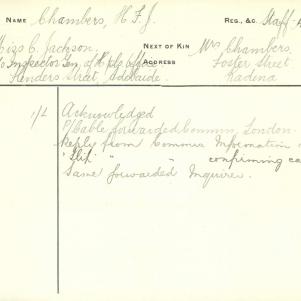 NAME Chambers, H. F. J. REG., &C. Staff
Miss C. Jackson, NEXT OF KIN Mrs Chambers,
Inspector Gen. of Hospls Office ADDRESS Foster Street
Flinders Street, Adelaide. Kadina
1/2 Acknowledged
Cable forwarded Commn, London.
Reply from Commn Information
"Slip" " " confirming ca
Same forwarded Inquirer.